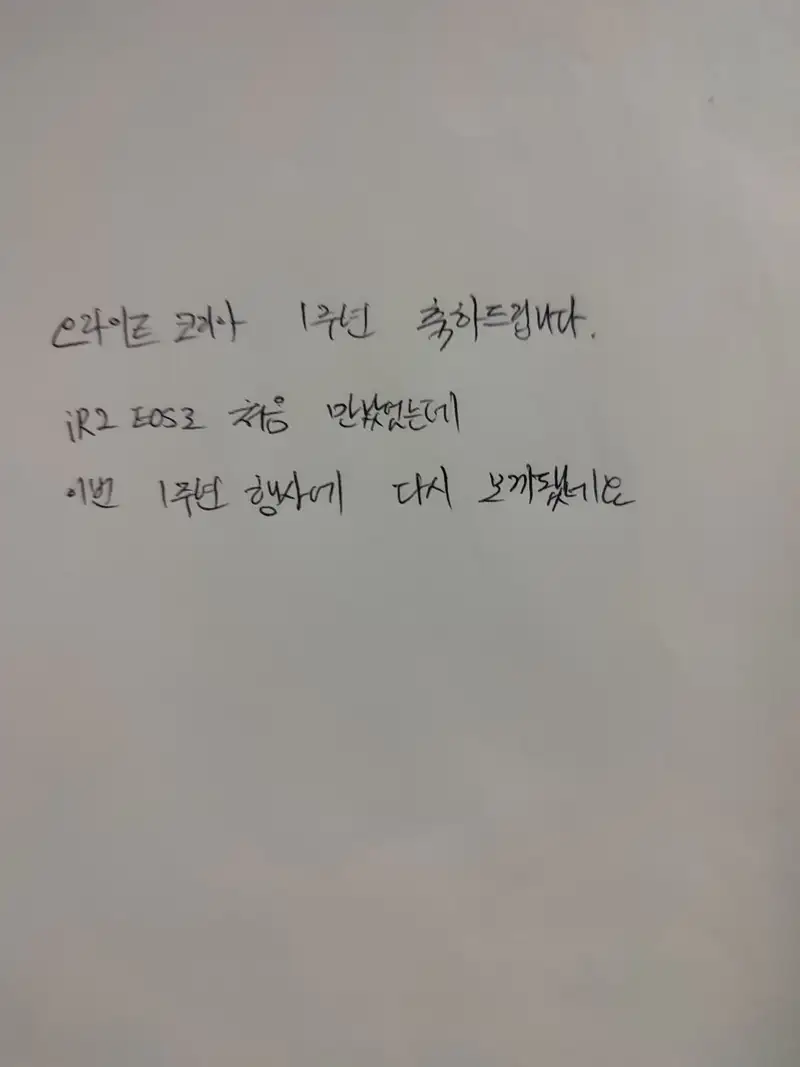 오라이트 코리아 1주년 축하드립니다.
iR2 EOS로 처음 만났었는데
이번 1주년 행사에 다시 보게됐네요